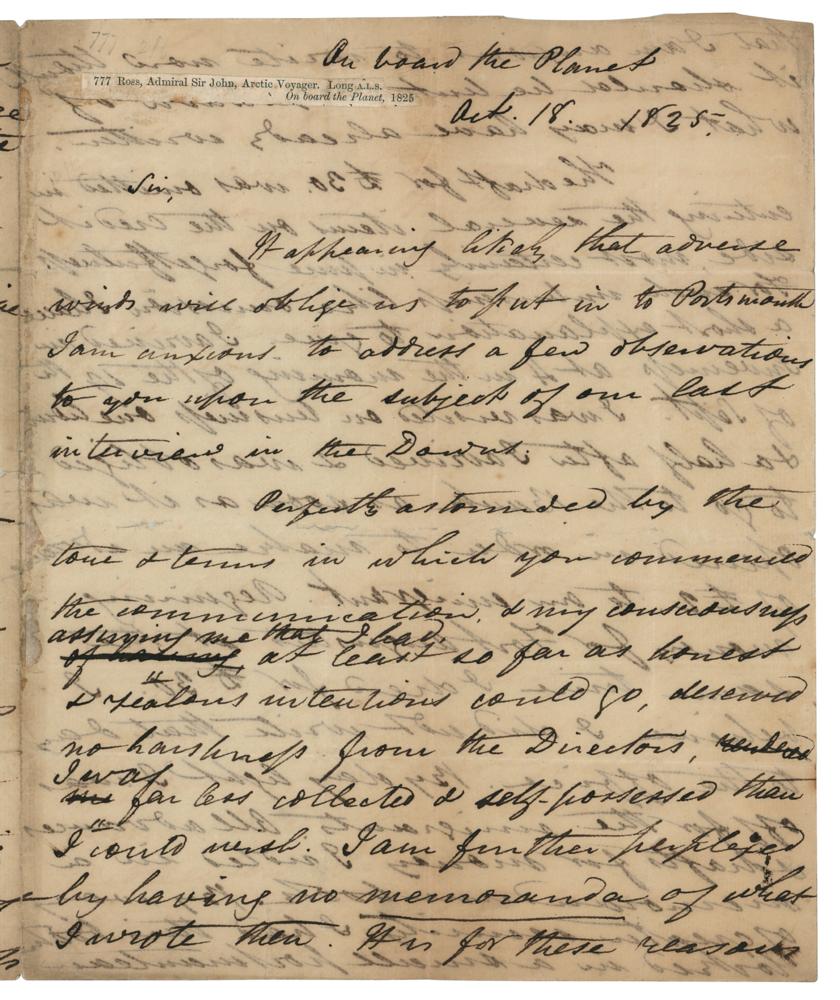 On board the Planet
777 Ross, Admiral Sir John, Arctic Voyager. Long A.L.S.
On board the Planet, 1825
Oct. 18. 1825.
Sir,
It appearing likely that adverse
winds will oblige us to put in to Portsmouth
I am anxious to address a few observations
to you upon the subject of our last
interview in the Downs.
Perfectly astounded by the
tone & terms in which you commenced
the communication, & my consciousness
assuring me that I had,
of having at least so far as honest
& zealous intentions could go, deserved
no harshness from the Directors, rendered
I was
me far less collected & self-possessed than
I could wish. I am further perplexed
by having no memoranda of what
I wrote then. It is for these reasons